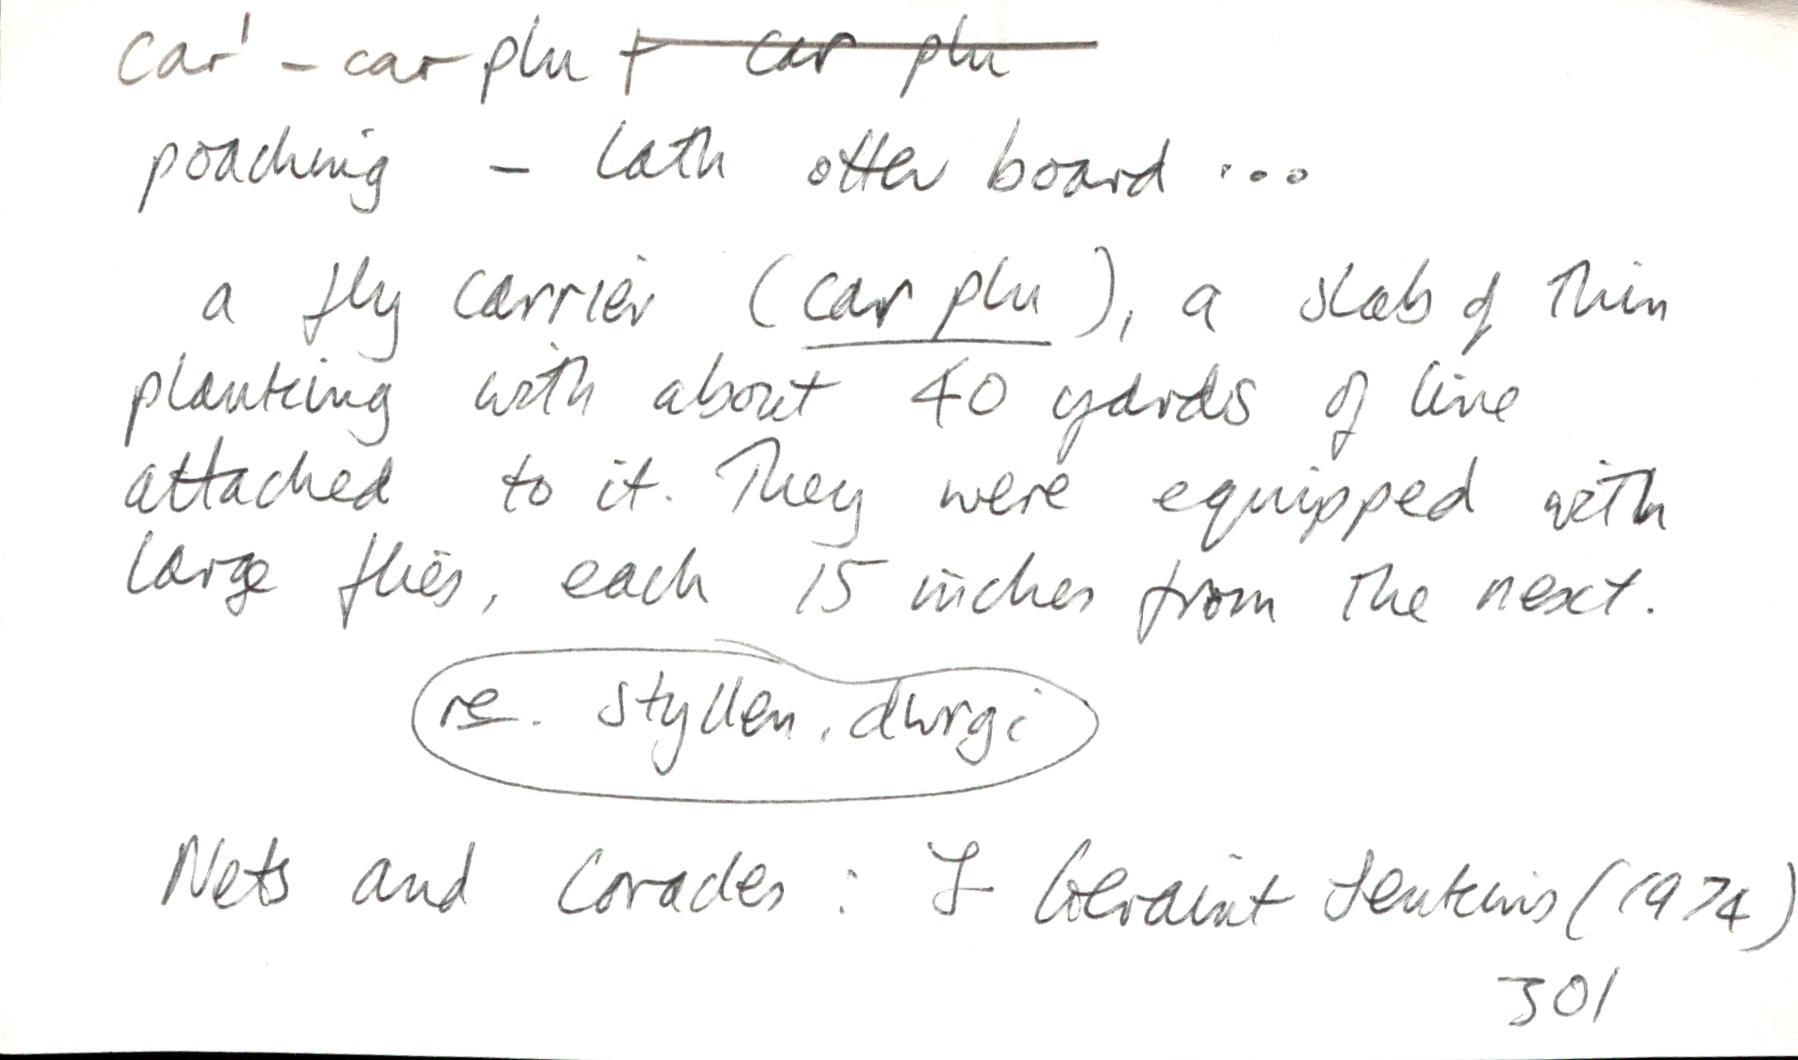 car¹ - car plu + car plu
poaching - lath otter board ...
a fly carrier (car plu), a slab of thin
planking with about 40 yards of line
attached to it. They were equipped with
large flies, each 15 inches from the next.
re. styllen, dwrgi
Nets and Coracles : J Geraint Jenkins (1974)
301